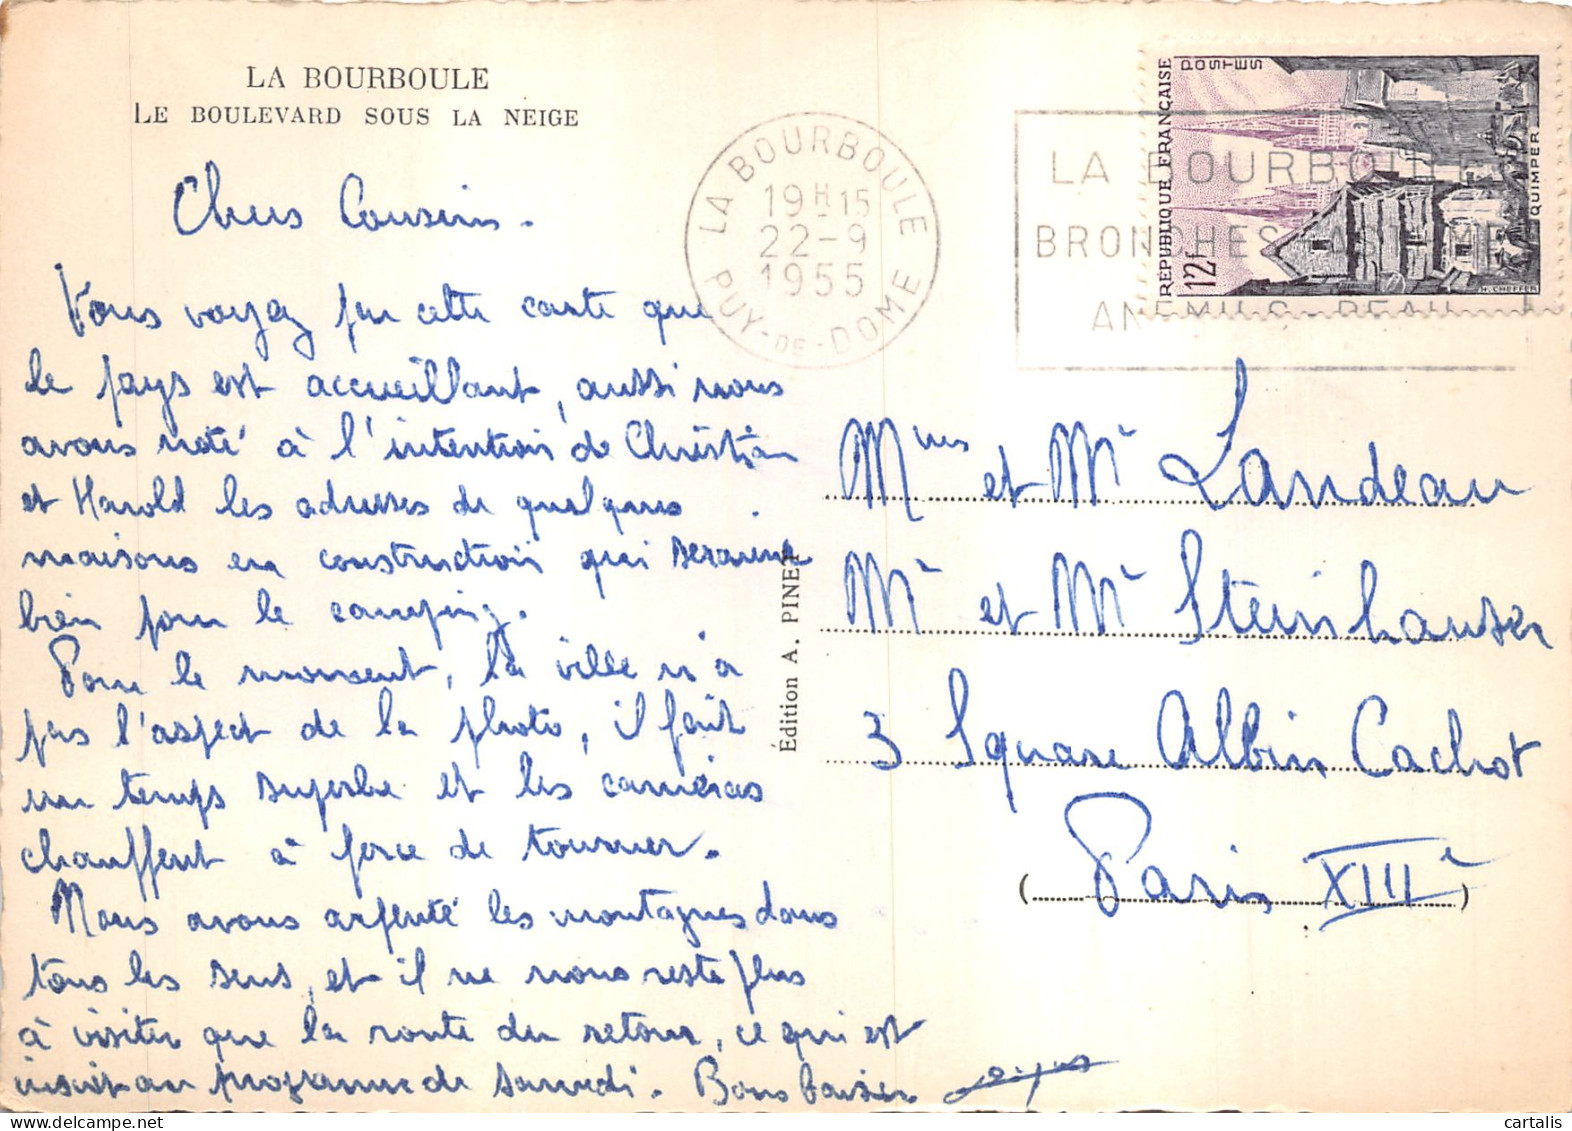 LA BOURBOULE
LE BOULEVARD SOUS LA NEIGE
Chers Cousins.
Vous voyez par cette carte que
le pays est accueillant, aussi nous
avons noté à l'intention de Christian
et Harold les adresses de quelques
maisons en construction qui seraient
bien pour le camping.
Pour le moment, la ville n'a
pas l'aspect de la photo, il fait
un temps superbe et les caméras
chauffent à force de tourner.
Nous avons arpenté les montagnes dans
tous les sens, et il ne nous reste plus
à visiter que la route du retour, ce qui est
inscrit au programme de samedi. Bons baisers
Édition A. PINET
LA BOURBOULE
19H15
22-9
1955
PUY-DE-DOME
LA BOURBOULE
BRONCHES
RÉPUBLIQUE FRANÇAISE
POSTES
12f
QUIMPER
H. CHEFFER
Mmes et Mr Landeau
Mr et Mr Steinhauser
3 Square Albin Cachot
(Paris XIIIe)
cartalis